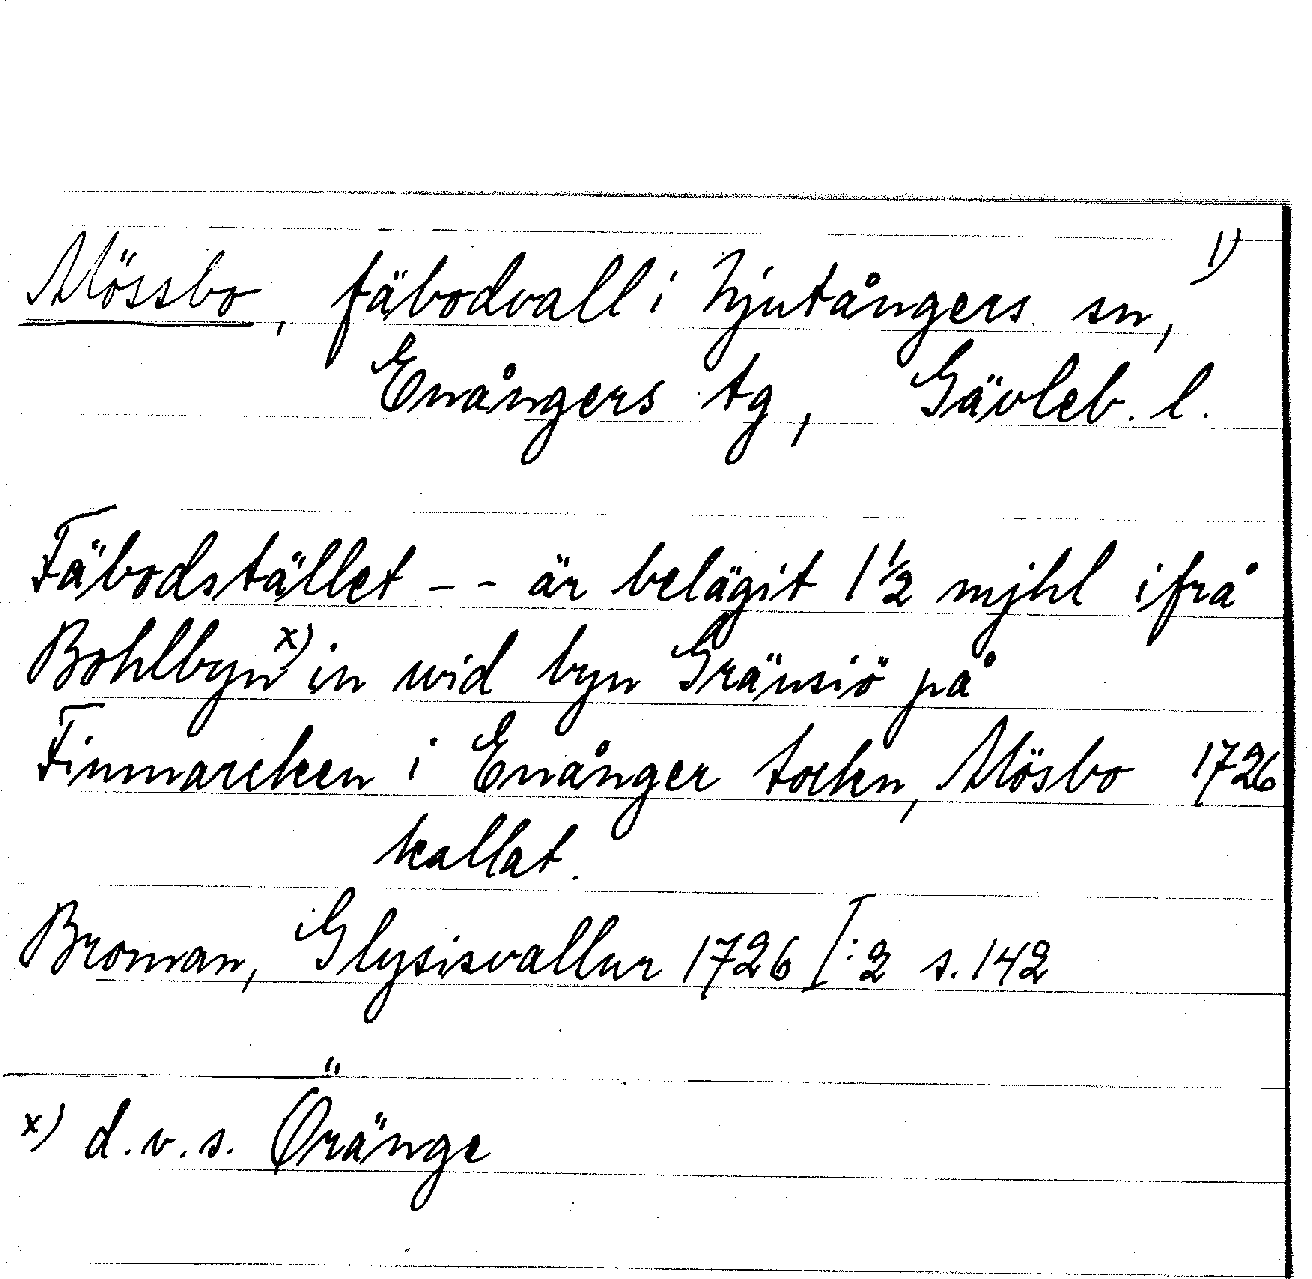 1)
Mössbo, fäbodvall i Njutångers sn,
Enångers tg, Gävleb. l.
Fäbodstället - - är belägit 1 1/2 mjhl ifrå
Bohlbyn x) in wid byn Gränsiö på
Finmarcken i Enånger sockn, Mösbo 1726
kallat.
Broman, Glysisvallur 1726 I:2 s. 142
x) d.v.s. Öränge